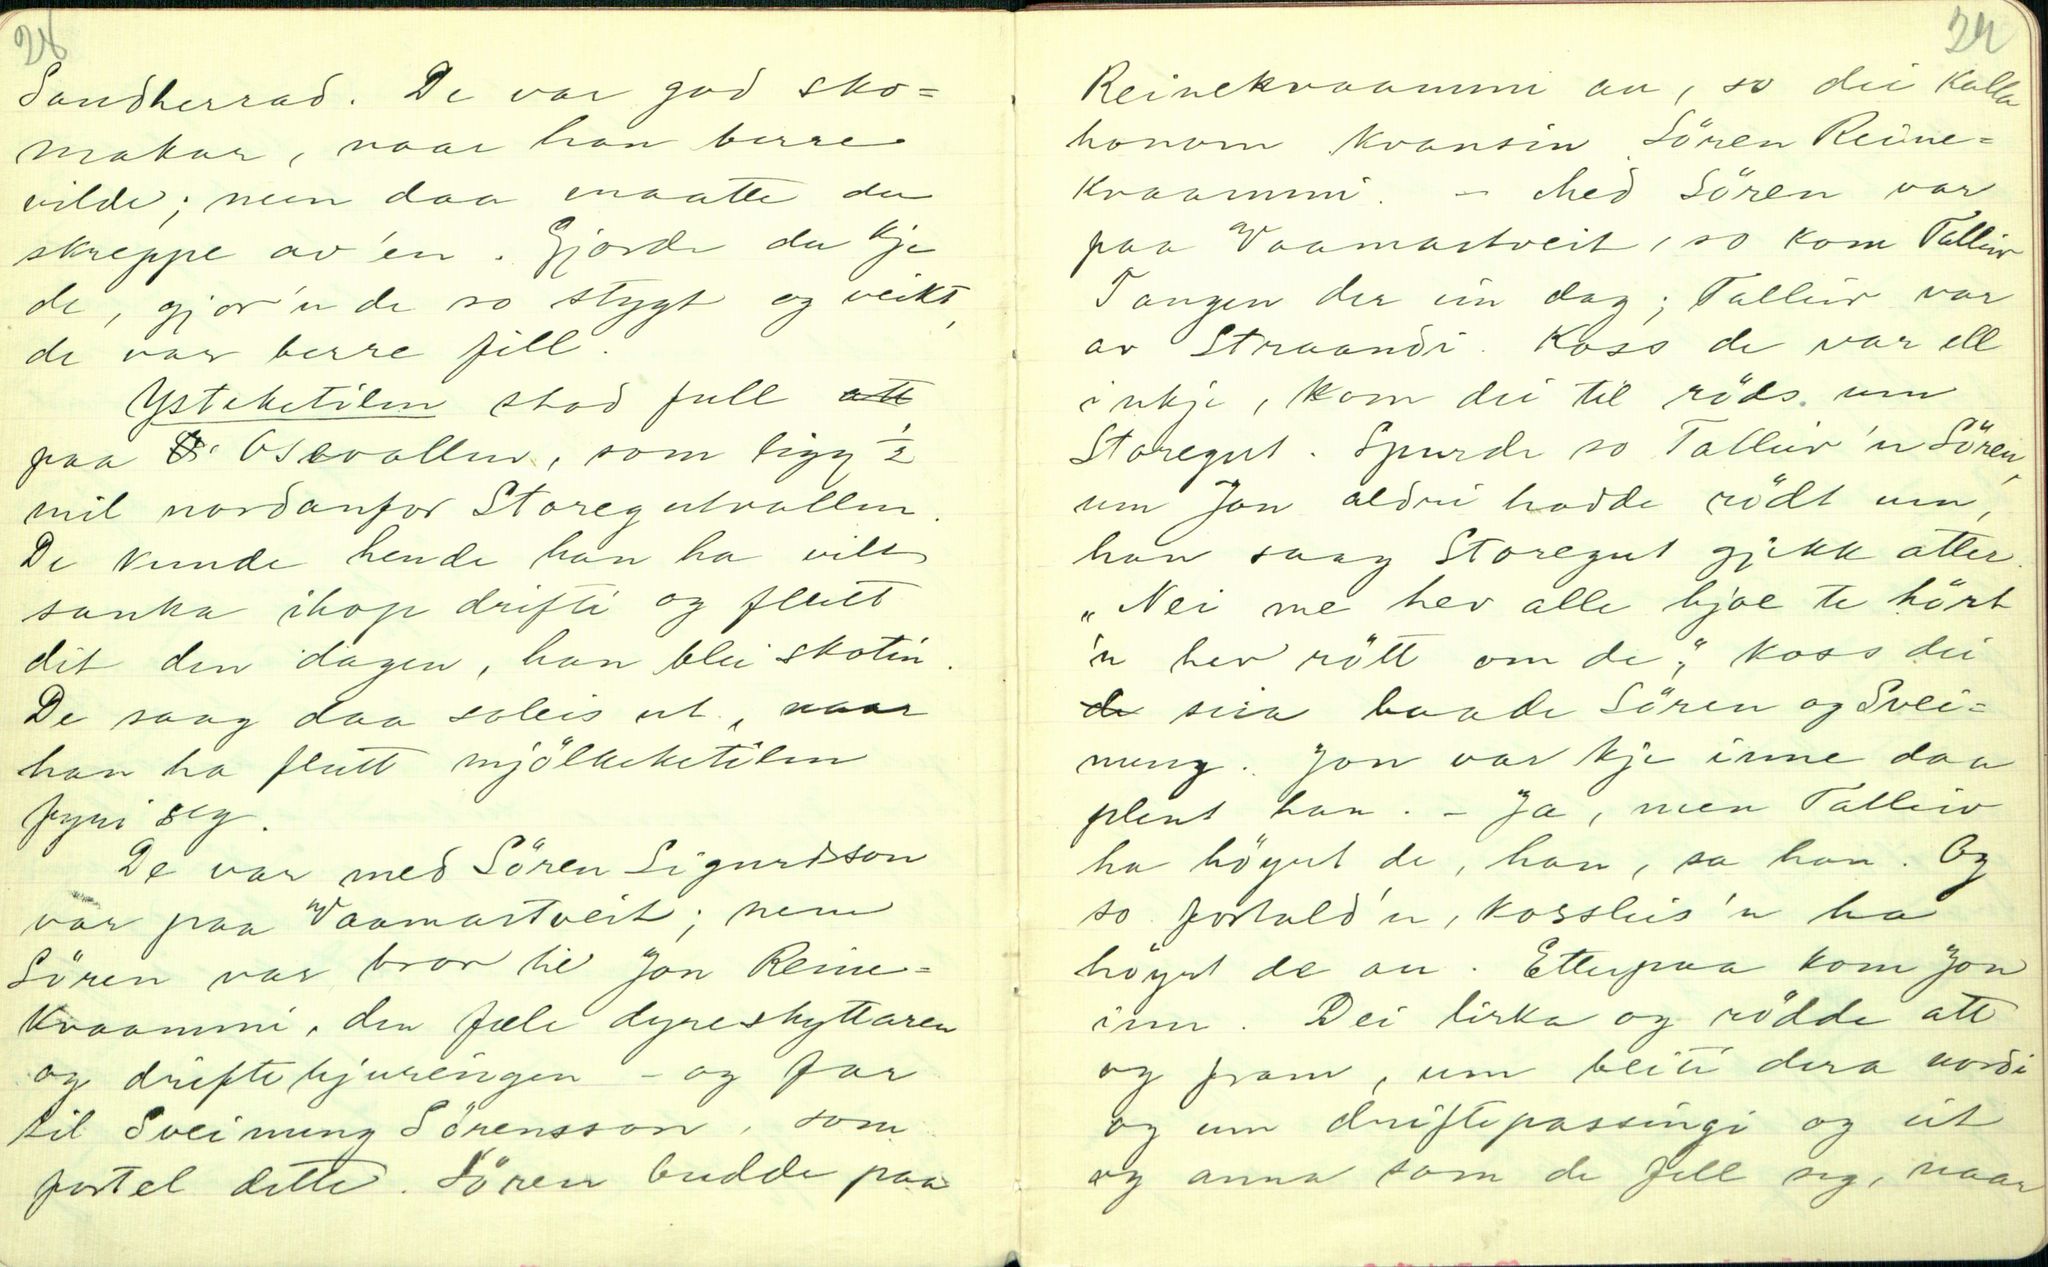 28
Sandherrad. De var god sko=
makar, naar han berre
vilde; men daa maatte du
skreppe av'en. Gjorde du kje
de, gjor'n de so stygt og veikt,
de var berre fill.
Ysteketilen stod full att
paa Osevollen, som ligg ½
mil nordanfor Storegutvollen.
De kunde hende han ha vilt
sanka ihop drifti og flutt
dit den dagen, han blei skotin.
De saag daa soleis ut, naar
han ha flutt mjölkeketilen
fyri seg.
De var med Sören Sigurdsson
var paa Vaamartveit; men
Sören var bror til Jon Reine=
kvaammi, den fæle dyreskyttaren
og driftehjuringen – og far
til Sveinung Sörensson, som
fortel dette. Sören budde paa
29
Reinekvaammi au, so dei kalla
honom kvansin Sören Reine=
kvaammi. – Med Sören var
paa Vaamartveit, so kom Talleiv
Tangen der ein dag; Talleiv var
av Straandi. Koss de var ell
inkje, kom dei til röds um
Storegut. Spurde so Talleiv 'n Sören,
um Jon aldri hadde rödt um,
han saag Storegut gjekk atter.
„Nei me hev alle hjæ te hört
'n hev rött om de", koss dei
de seia baade Sören og Svei=
nung. Jon var kje inne daa
plent han. – Ja, men Talleiv
ha höyrt de, han, sa han. Og
so fortald'n, korsleis'n ha
höyrt de au. Etterpaa kom Jon
inn. Dei lirka og rödde att
og fram, um beiti dera nordi
og um driftepassingi og eit
og anna som de fell seg, naar